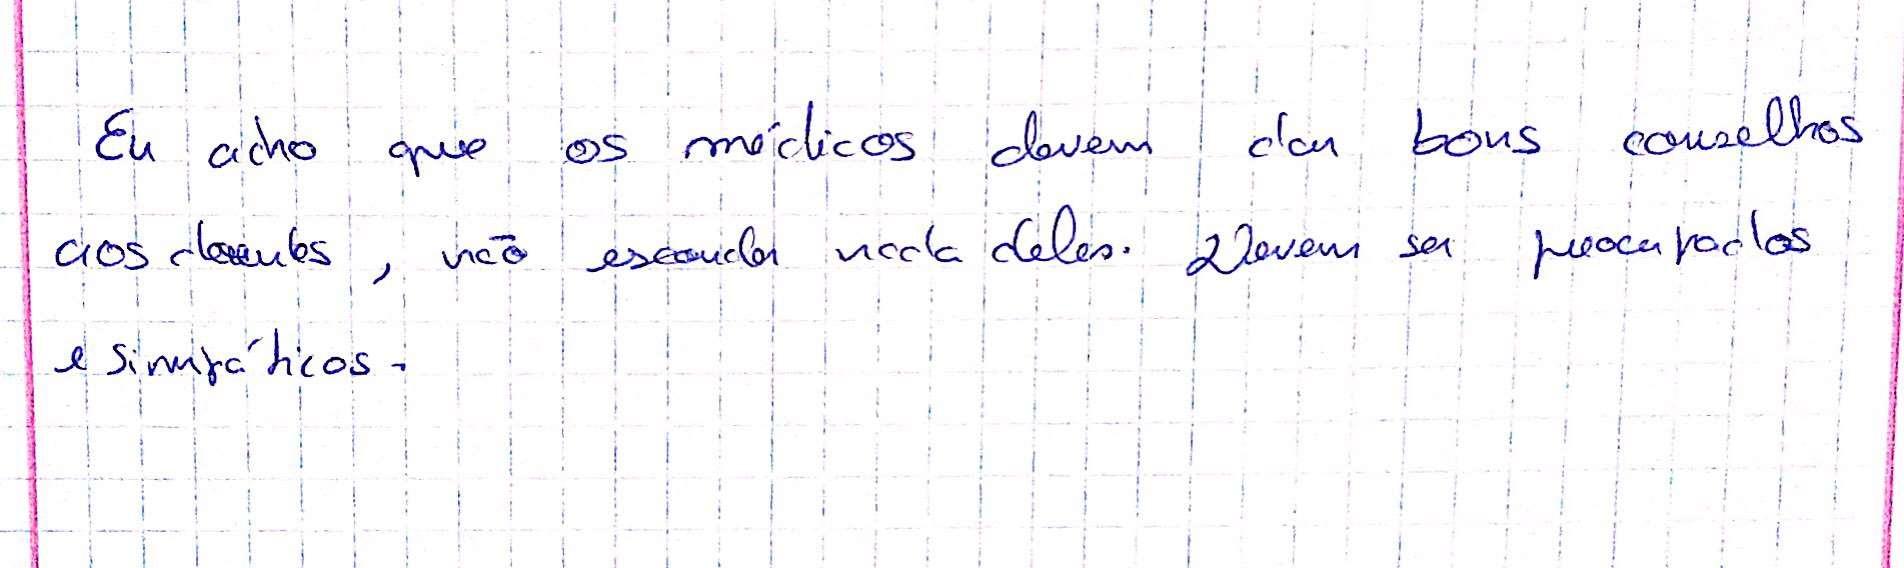 Eu acho que os médicos devem dar bons conselhos
aos doentes, não esconder nada deles. Devem ser preocupados
e simpáticos.